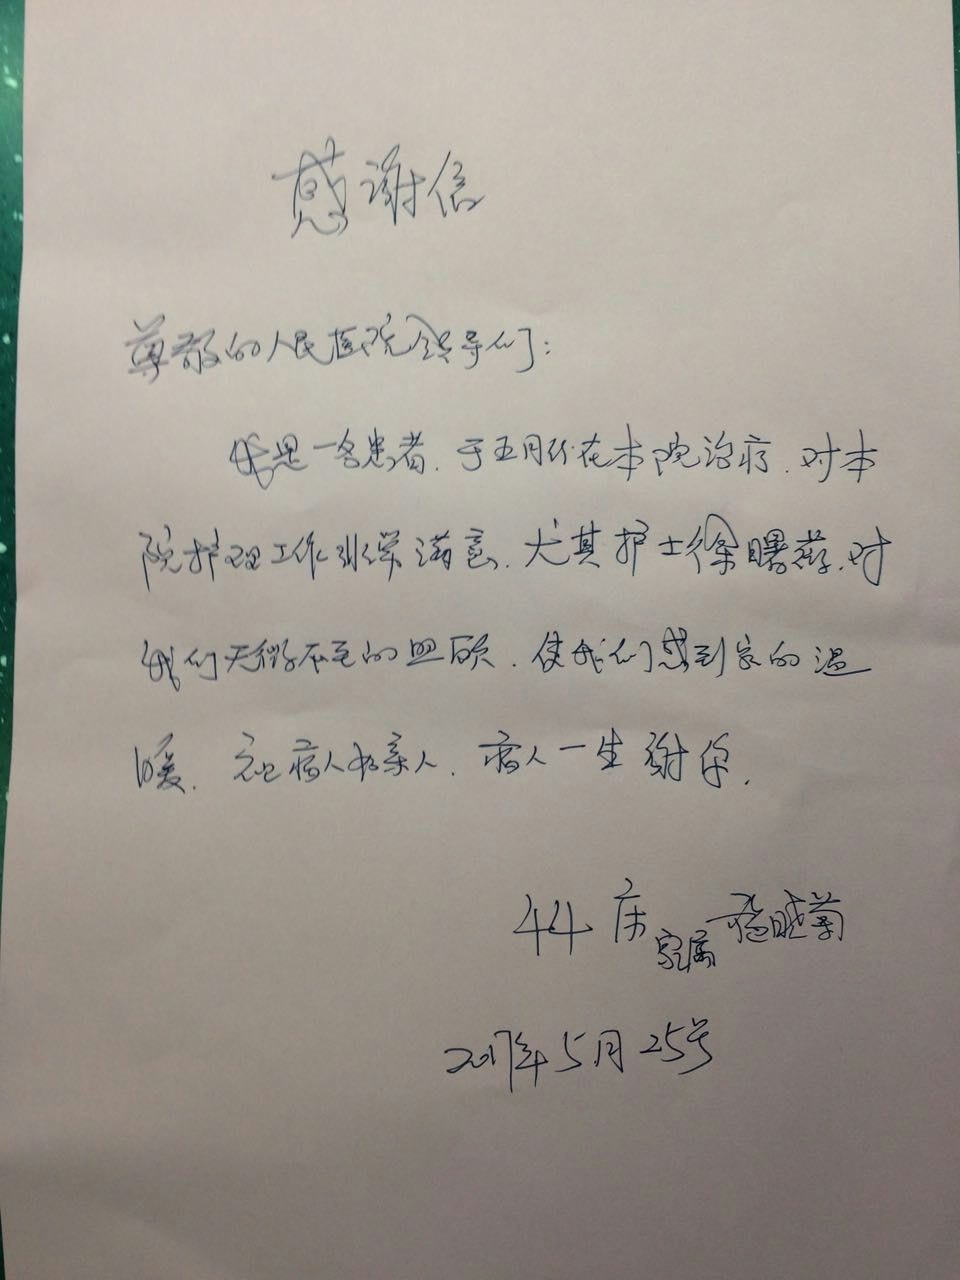 感谢信
尊敬的人民医院领导们：
我是一名患者，于五月份在本院治疗，对本
院护理工作非常满意，尤其护士徐曙，对
我们无微不至的照顾，使我们感到家的温
暖，视病人为亲人，病人一生谢你，
44床家属 晓菊
2017年5月25号